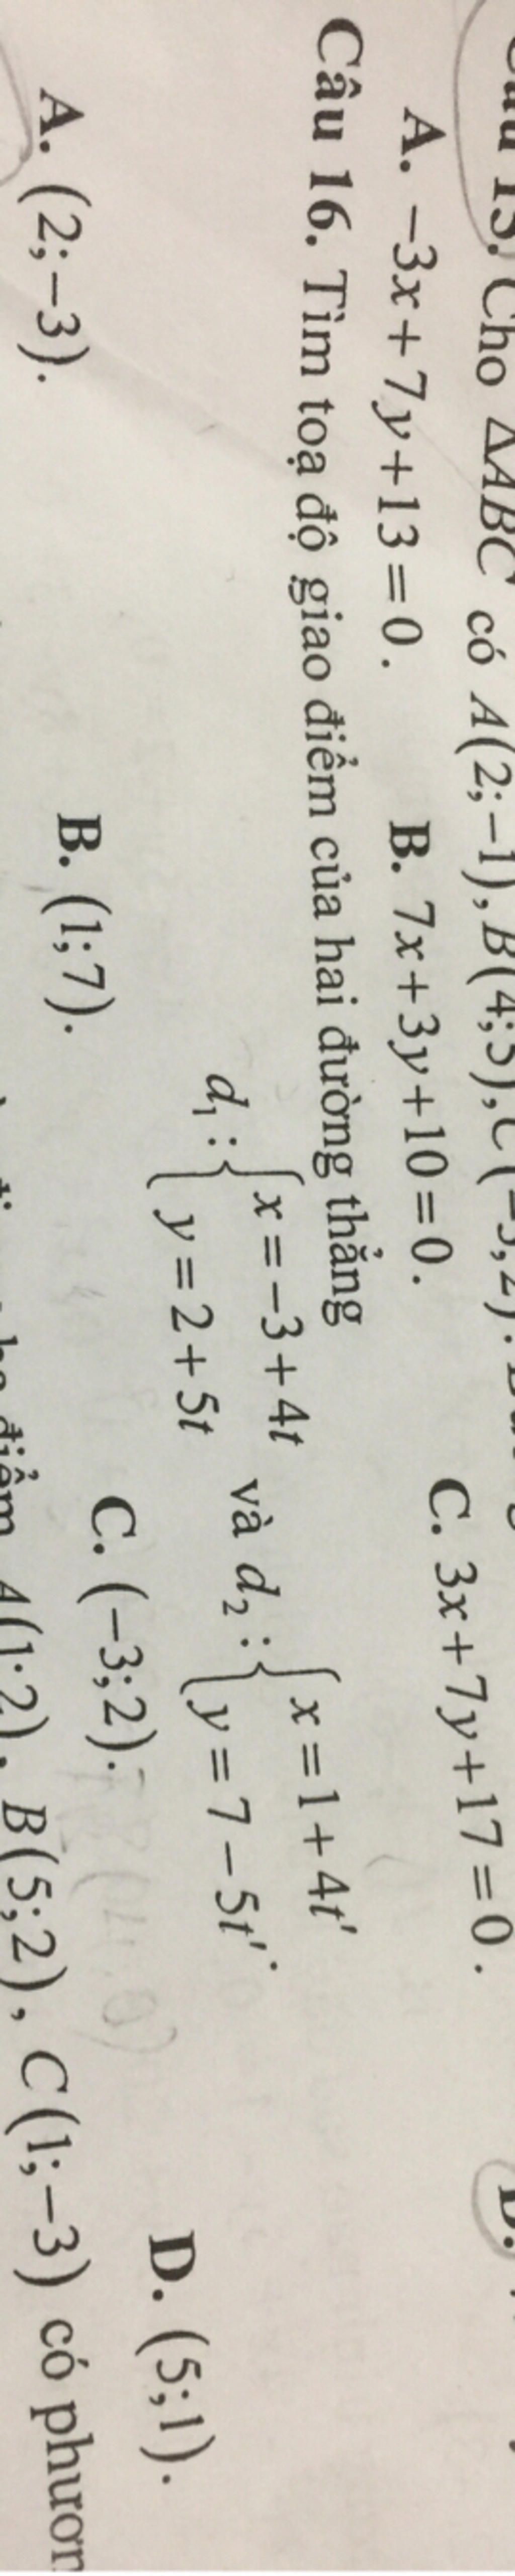 Cho ΔABC có A(2;−1), B(4;5), C(−3;2).
A. −3x+7y+13=0. B. 7x+3y+10=0. C. 3x+7y+17=0. D.
Câu 16. Tìm toạ độ giao điểm của hai đường thẳng
d₁: { x=−3+4t
y=2+5t và d₂: { x=1+4t'
y=7−5t'.
A. (2;−3). B. (1;7). C. (−3;2). D. (5;1).
điểm A(1;2), B(5;2), C(1;−3) có phươn